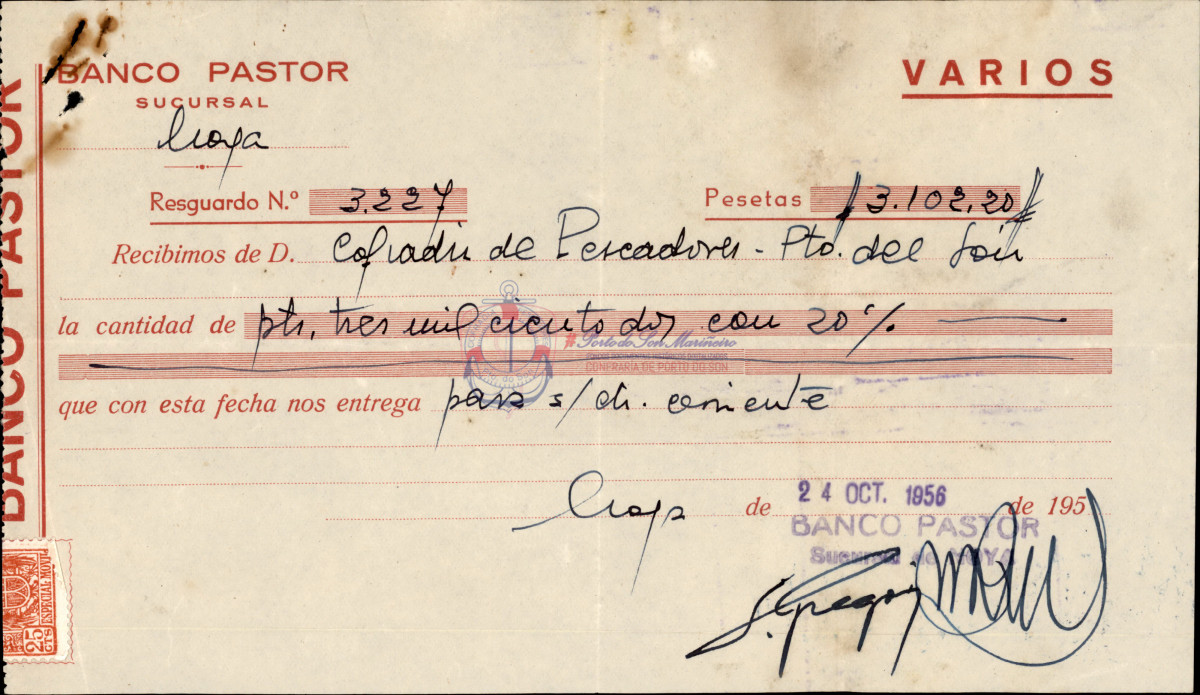 BANCO PASTOR
BANCO PASTOR
SUCURSAL
Noya
VARIOS
Resguardo N.º 3.227
Pesetas #3.102,20#
Recibimos de D. Cofradía de Pescadores - Pto. del Son
la cantidad de pts, tres mil ciento dos con 20%
#Porto do Son Mariñeiro
CONFRARÍA DE PORTO DO SON
que con esta fecha nos entrega para s/ cta. corriente
Noya de 24 OCT. 1956 de 195
BANCO PASTOR
Sucursal de NOYA
ESPECIAL MOVIL
25 CTS